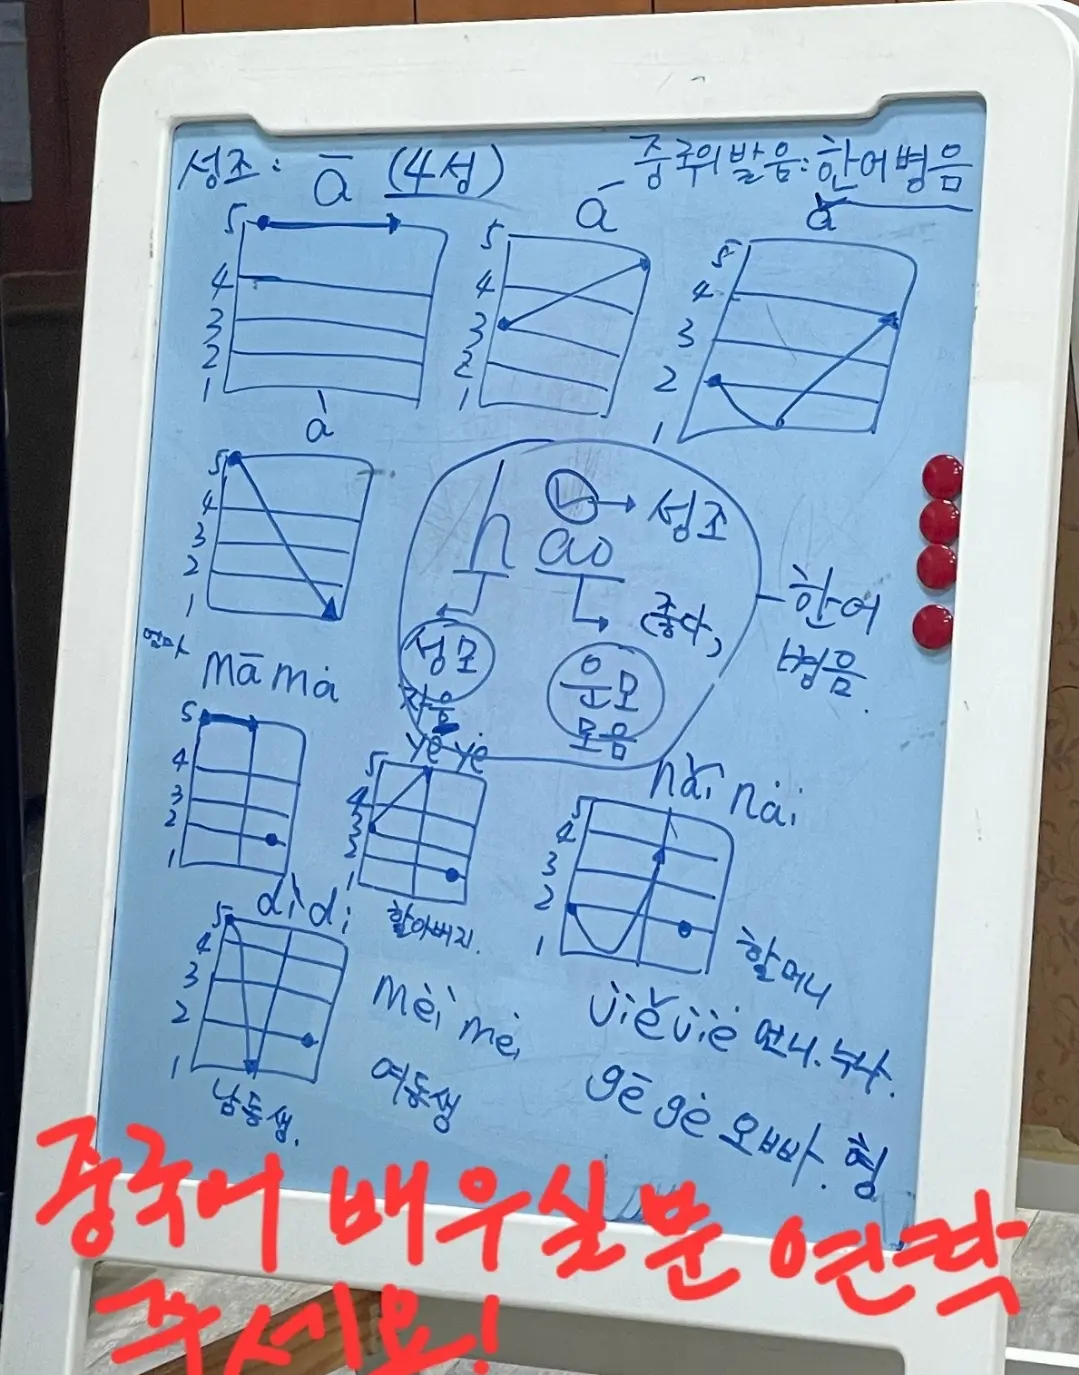 성조: ā (4성)
중국의 발음: 한어병음
á
ǎ
5
4
3
2
1
5
4
3
2
1
5
4
3
2
1
à
5
4
3
2
1
h ǎo
성조
좋다,
성모
자음
운모
모음
한어
병음
엄마
māmȧ
5
4
3
2
1
yéyė
5
4
3
2
1
할아버지.
nǎi nȧi
5
4
3
2
1
할머니
dìdi
5
4
3
2
1
남동생.
mèi mėi
여동생
jiějiė 언니. 누나.
gēgė 오빠. 형
중국어 배우실분 연락
주세요!